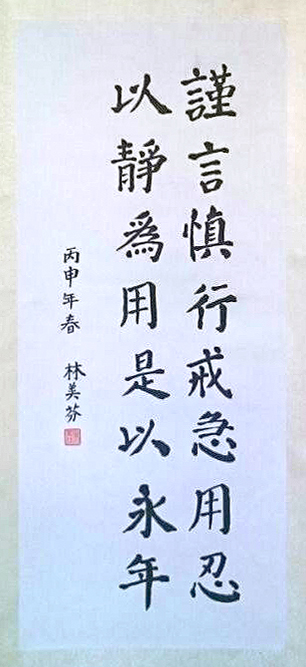 謹言慎行戒急用忍
以靜為用是以永年
丙申年春 林美芬